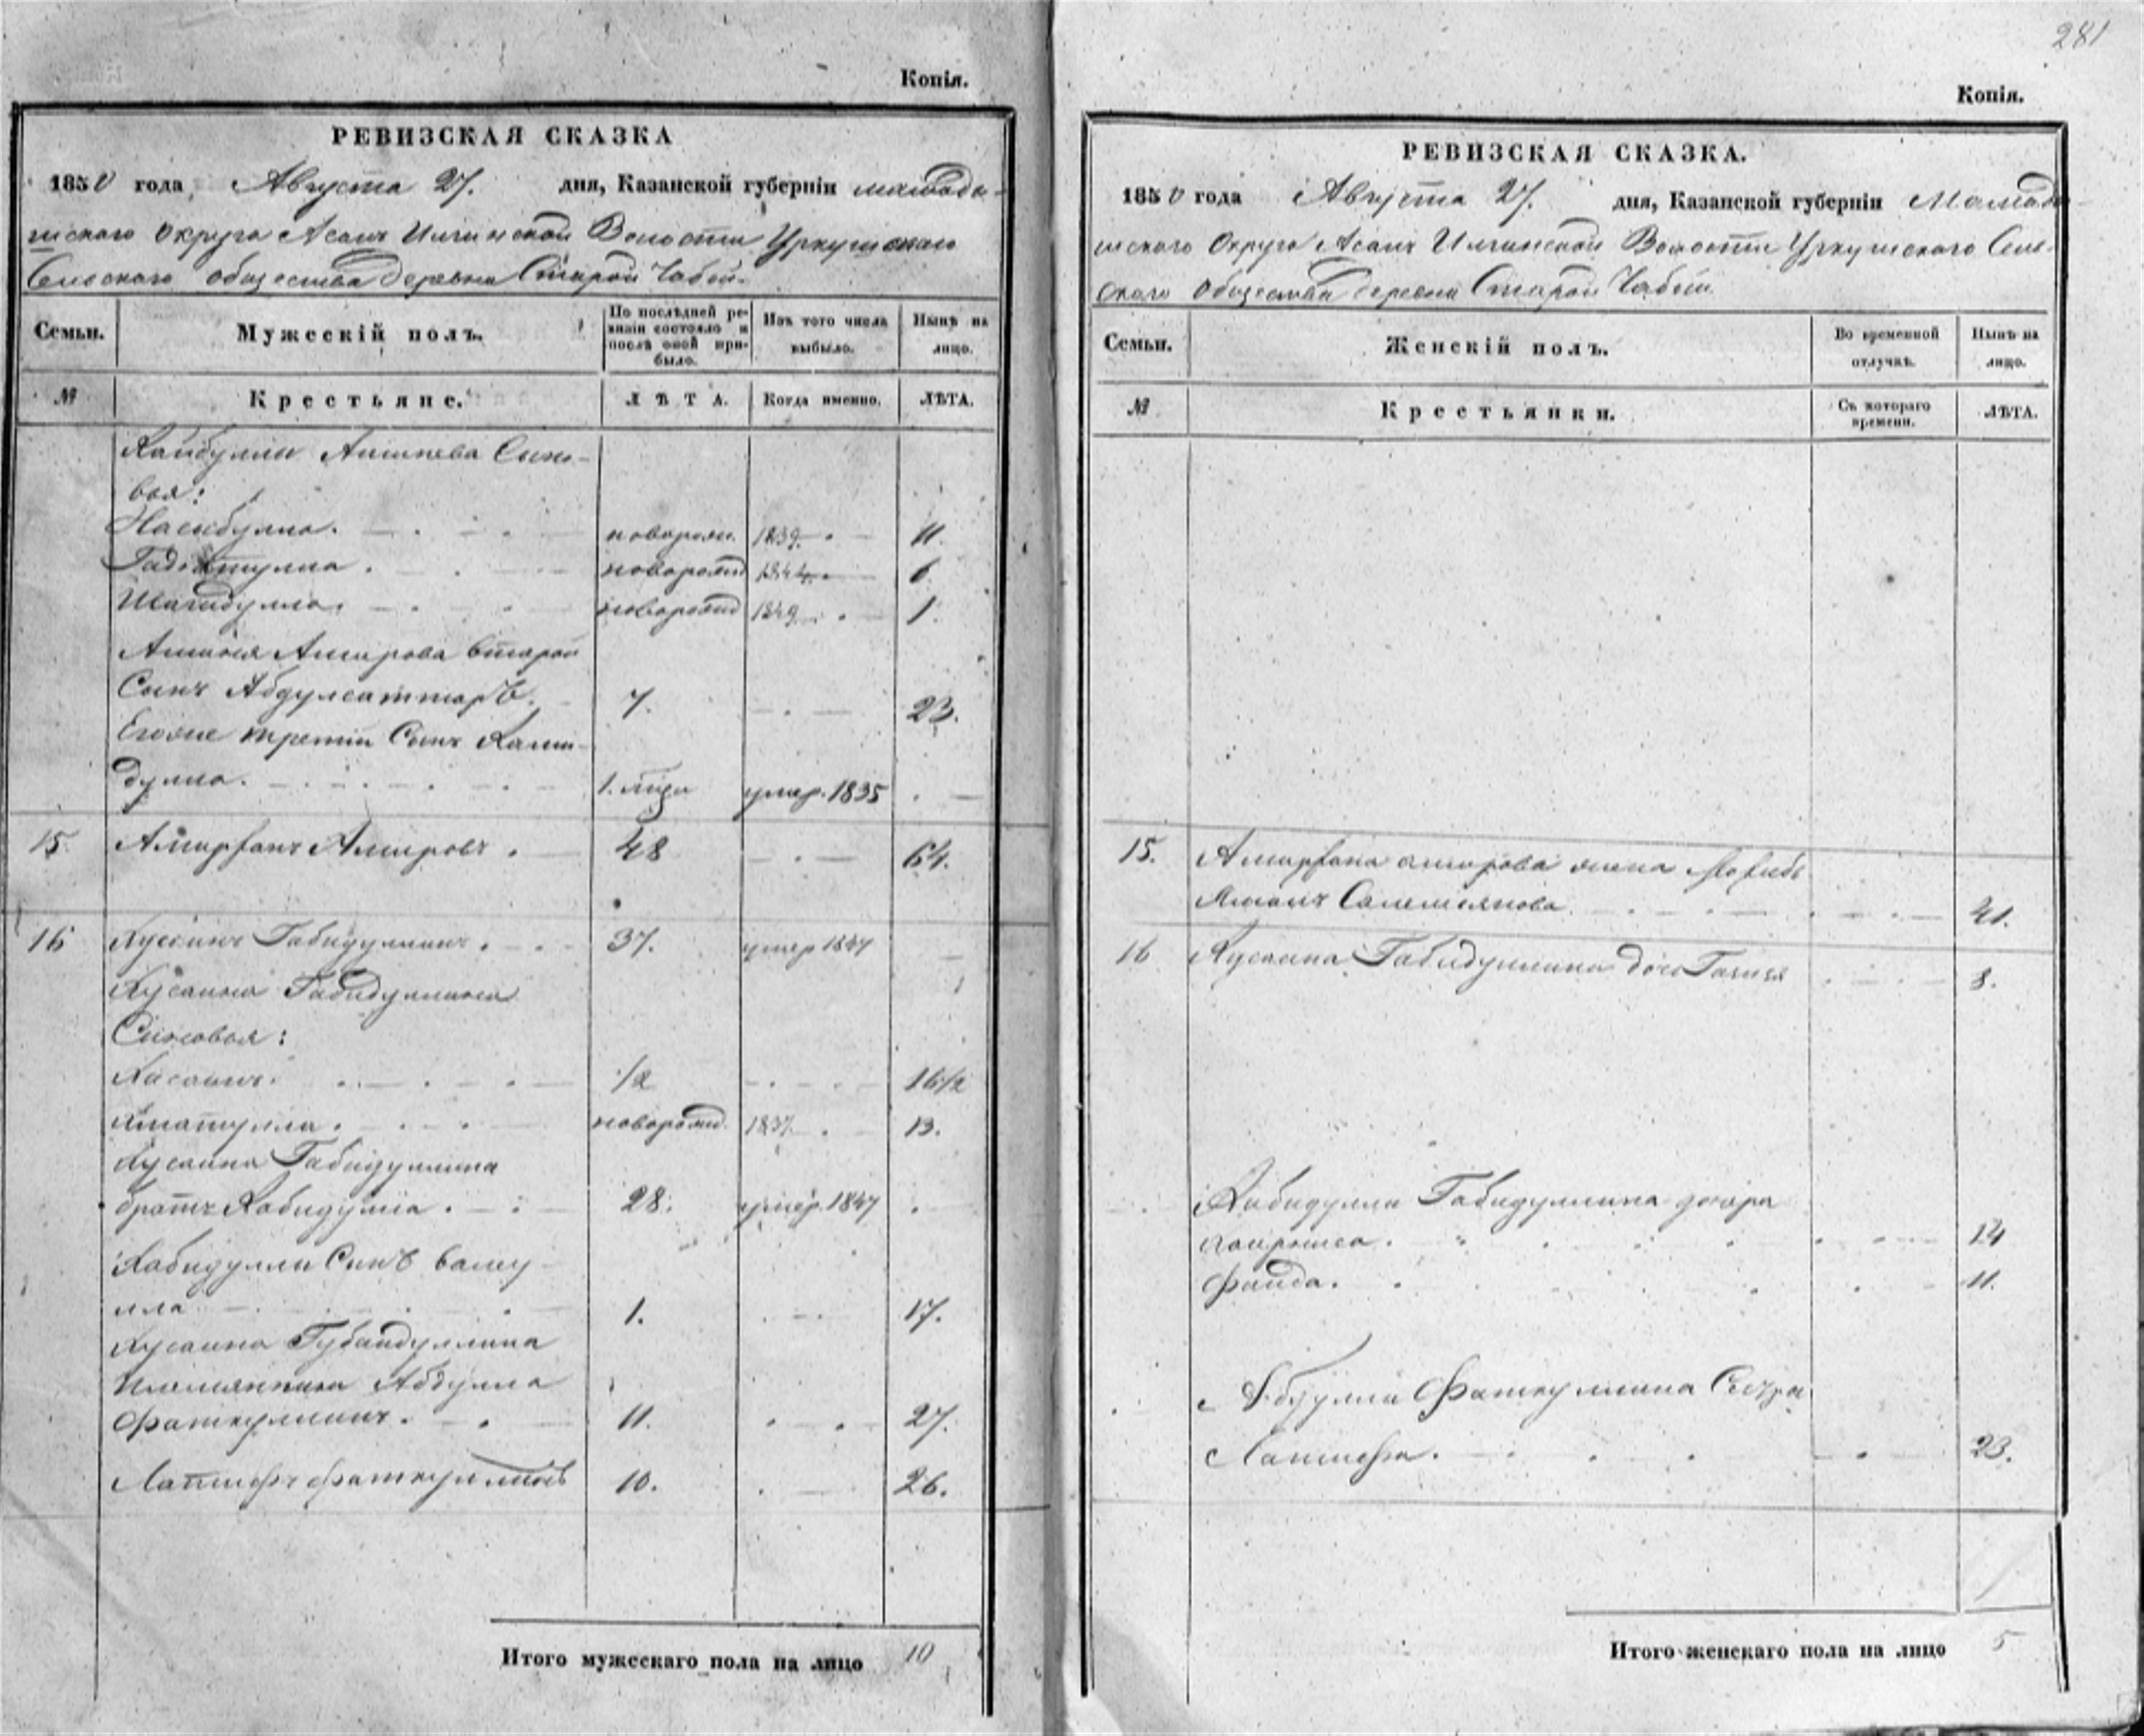 Копія.
РЕВИЗСКАЯ СКАЗКА
1850 года, Августа 27. дня, Казанской губерніи мамады-
шскаго округа Асанъ Илгинской Волости Уркушскаго
Сельскаго общества деревни Старой Чабьи.
Семьи. Мужескій полъ. По послѣдней ре-визіи состояло и послѣ оной при-было. Изъ того числа выбыло. Нынѣ на лицо.
№ Крестьяне. ЛѢТА. Когда именно. ЛѢТА.
Сыно-
вья:
Насибулла. новорож. 1839 11.
новорожд 1844 6
Шагидулла. новорожд 1849 1.
Амирова второй
Сынъ Абдулсаттаръ. 7. 23.
Егоже третий Сынъ
дулла. умер. 1835
15. Амирханъ Амировъ. 48 64.
16 Хусаинъ Габидуллинъ. 37. умер 1847
Хусаина Габидуллина
Сыновья:
Хасанъ. 1/2 16 1/2
новорожд. 1837. 13.
Хусаина Габидуллина
братъ Хабидулла. 28. умер. 1847
Хабидуллы Сынъ Валиу-
лла 1. 17.
Хусаина Губайдуллина
племянники Абдулла
Фаткуллинъ. 11. 27.
Латыфъ Фаткуллинъ 10. 26.
Итого мужескаго пола на лицо 10
281
Копія.
РЕВИЗСКАЯ СКАЗКА.
1850 года Августа 27. дня, Казанской губерніи Мамады-
шскаго Округа Асанъ Илгинской Волости Уркушскаго Сель-
скаго Общества деревни Старой Чабьи
Семьи. Женскій полъ. Во временной отлучкѣ. Нынѣ на лицо.
№ Крестьянки. Съ котораго времени. ЛѢТА.
15. Амирхана амирова жена
41.
16 Хусаина Габидуллина дочь 8.
Хабидуллы Габидуллина дочери
14
Фаида. 11.
Абдуллы Фаткуллина Сестра
Латифа. 23.
Итого женскаго пола на лицо 5